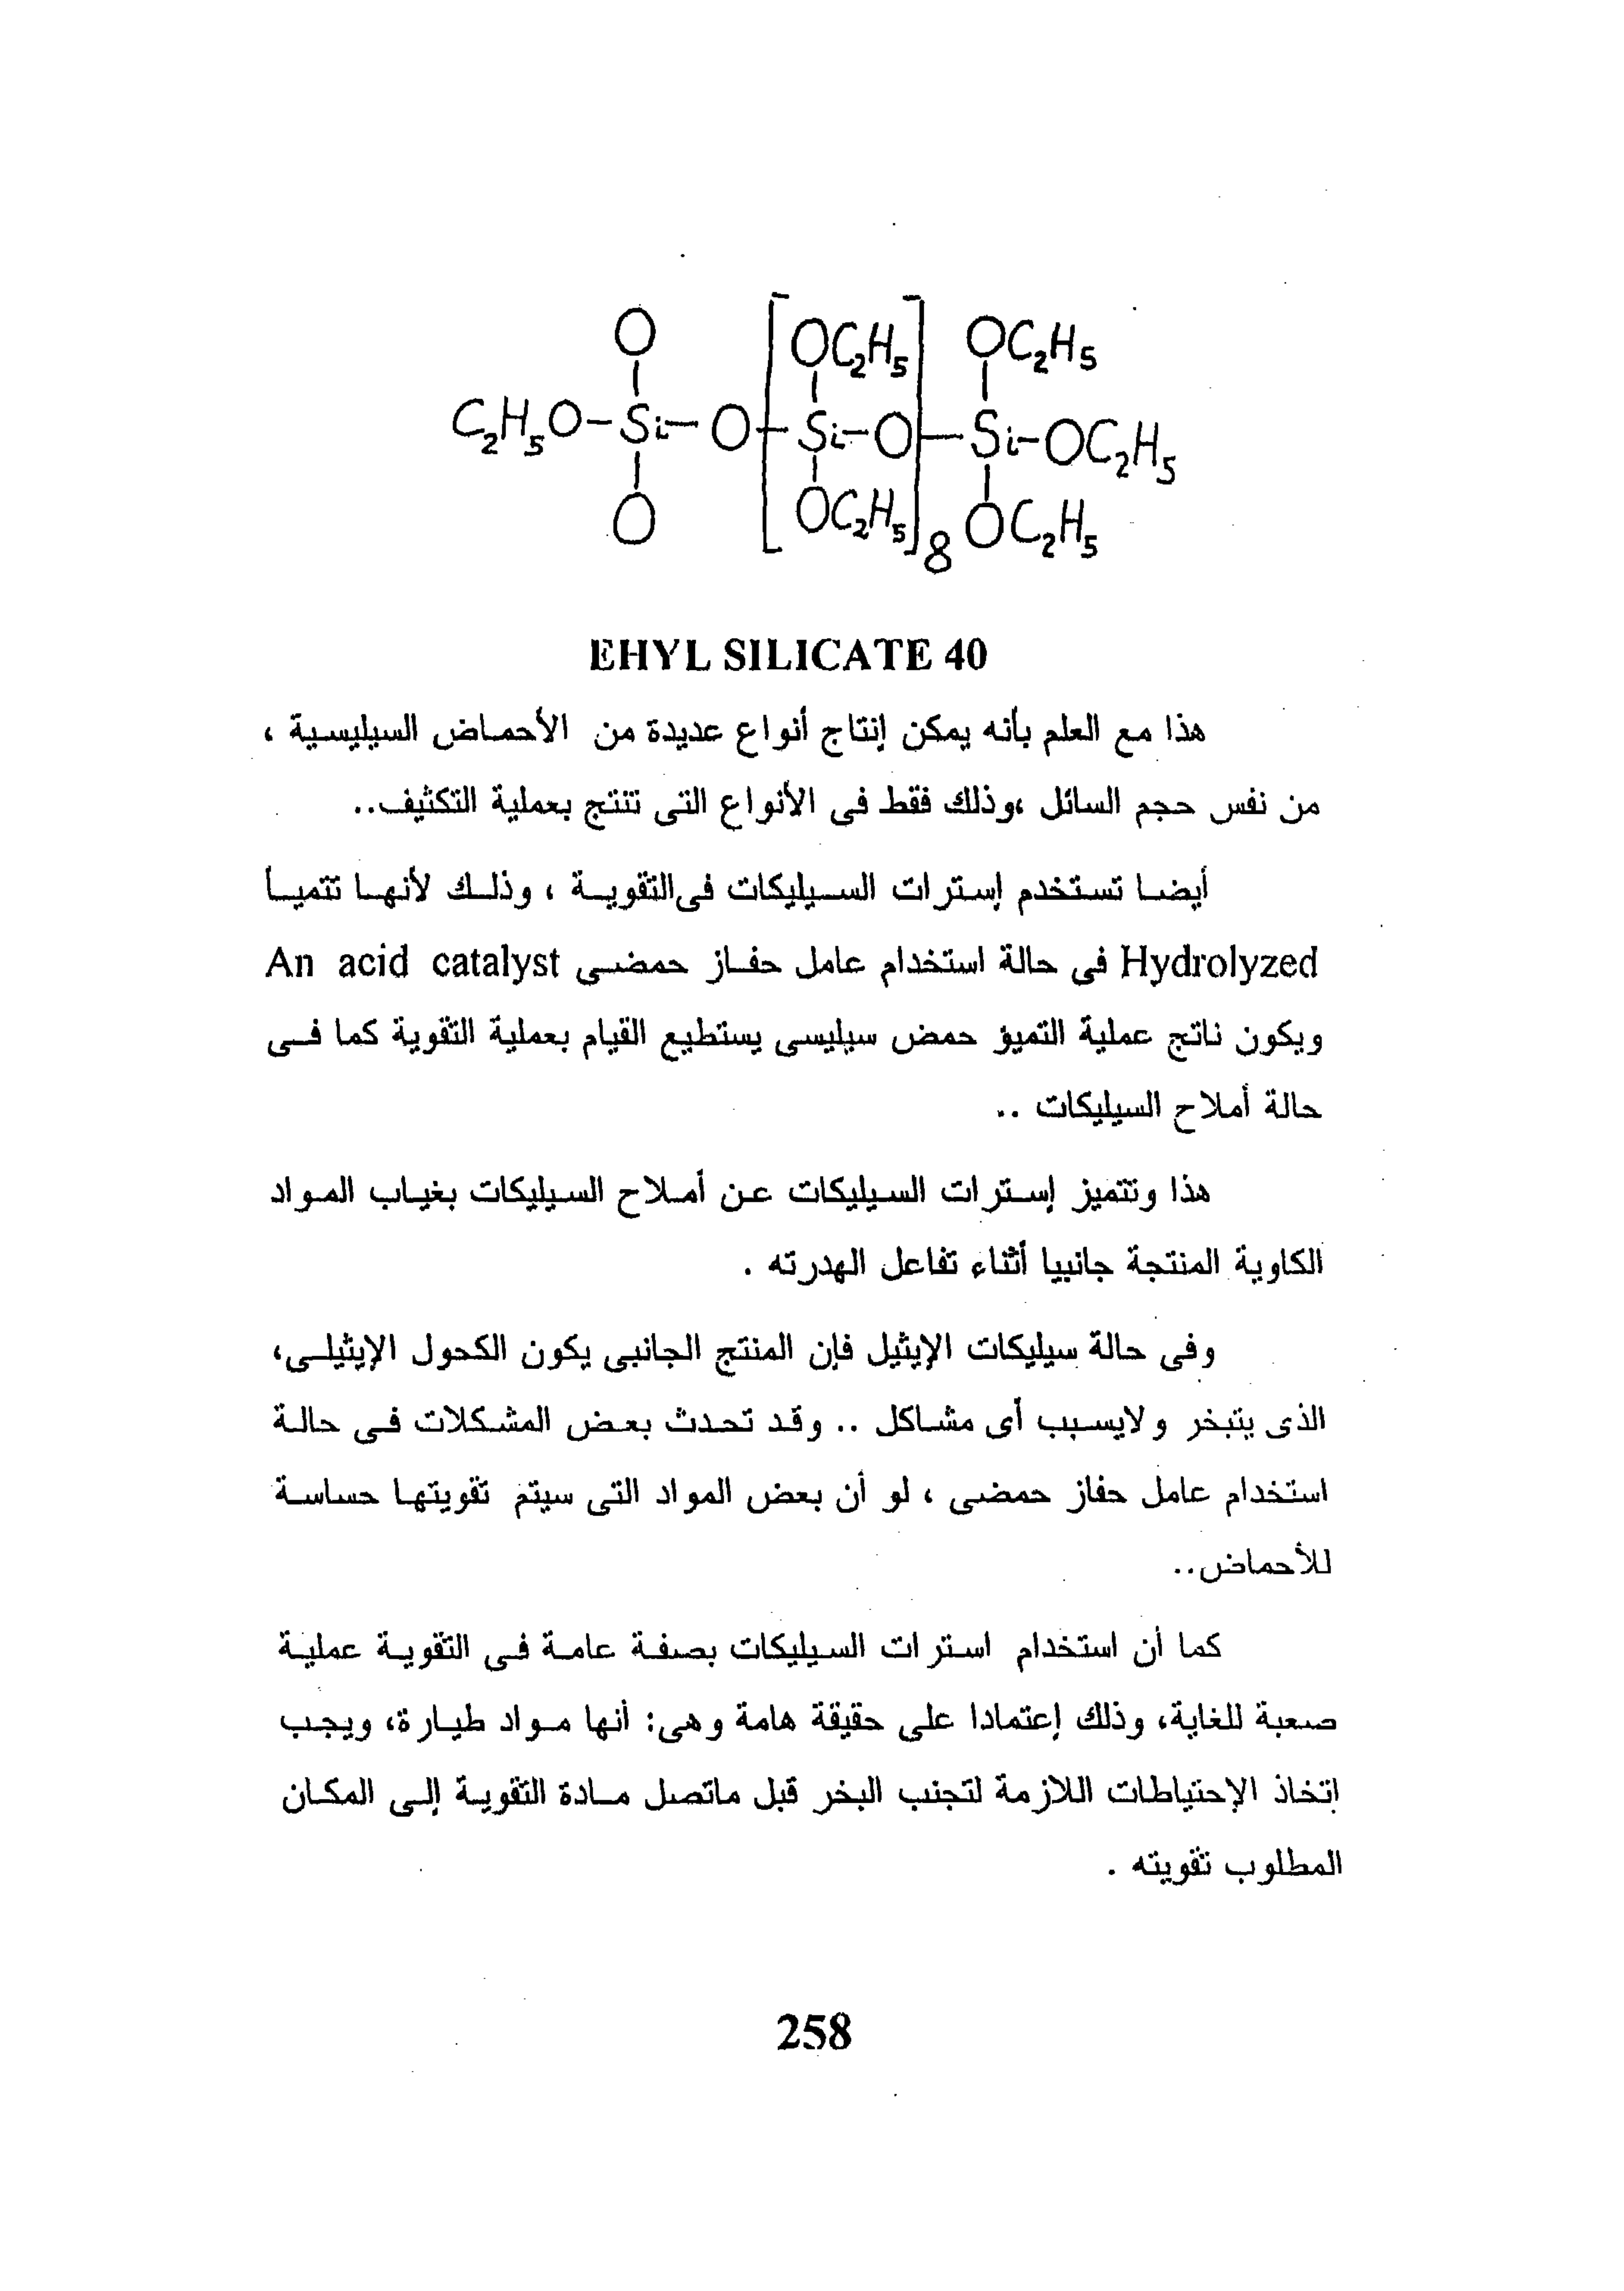 O OC₂H₅ OC₂H₅
C₂H₅O-Si-O-[Si-O]-Si-OC₂H₅
O OC₂H₅ 8 OC₂H₅
EHYL SILICATE 40
هذا مع العلم بأنه يمكن إنتاج أنواع عديدة من الأحماض السيليسية ،
من نفس حجم السائل ،وذلك فقط فى الأنواع التى تنتج بعملية التكثيف..
أيضا تستخدم إسترات السيليكات فىالتقوية ، وذلك لأنها تتميأ
Hydrolyzed فى حالة استخدام عامل حفاز حمضى An acid catalyst
ويكون ناتج عملية التميؤ حمض سيليسى يستطيع القيام بعملية التقوية كما فى
حالة أملاح السيليكات ..
هذا وتتميز إسترات السيليكات عن أملاح السيليكات بغياب المواد
الكاوية المنتجة جانبيا أثناء تفاعل الهدرته .
وفى حالة سيليكات الإيثيل فإن المنتج الجانبى يكون الكحول الإيثيلى،
الذى يتبخر ولايسبب أى مشاكل .. وقد تحدث بعض المشكلات فى حالة
استخدام عامل حفاز حمضى ، لو أن بعض المواد التى سيتم تقويتها حساسة
للأحماض..
كما أن استخدام استرات السيليكات بصفة عامة فى التقوية عملية
صعبة للغاية، وذلك إعتمادا على حقيقة هامة وهى: أنها مواد طيارة، ويجب
إتخاذ الإحتياطات اللازمة لتجنب البخر قبل ماتصل مادة التقوية إلى المكان
المطلوب تقويته .
258